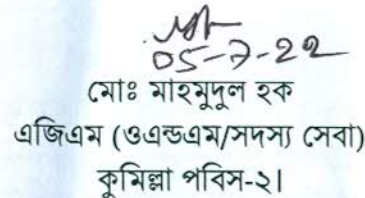 05-7-22
মোঃ মাহমুদুল হক
এজিএম (ওএন্ডএম/সদস্য সেবা)
কুমিল্লা পবিস-২।